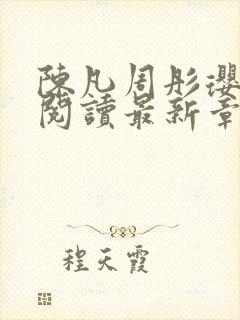 陳凡周彤瓔
閱讀最新章
程天霞